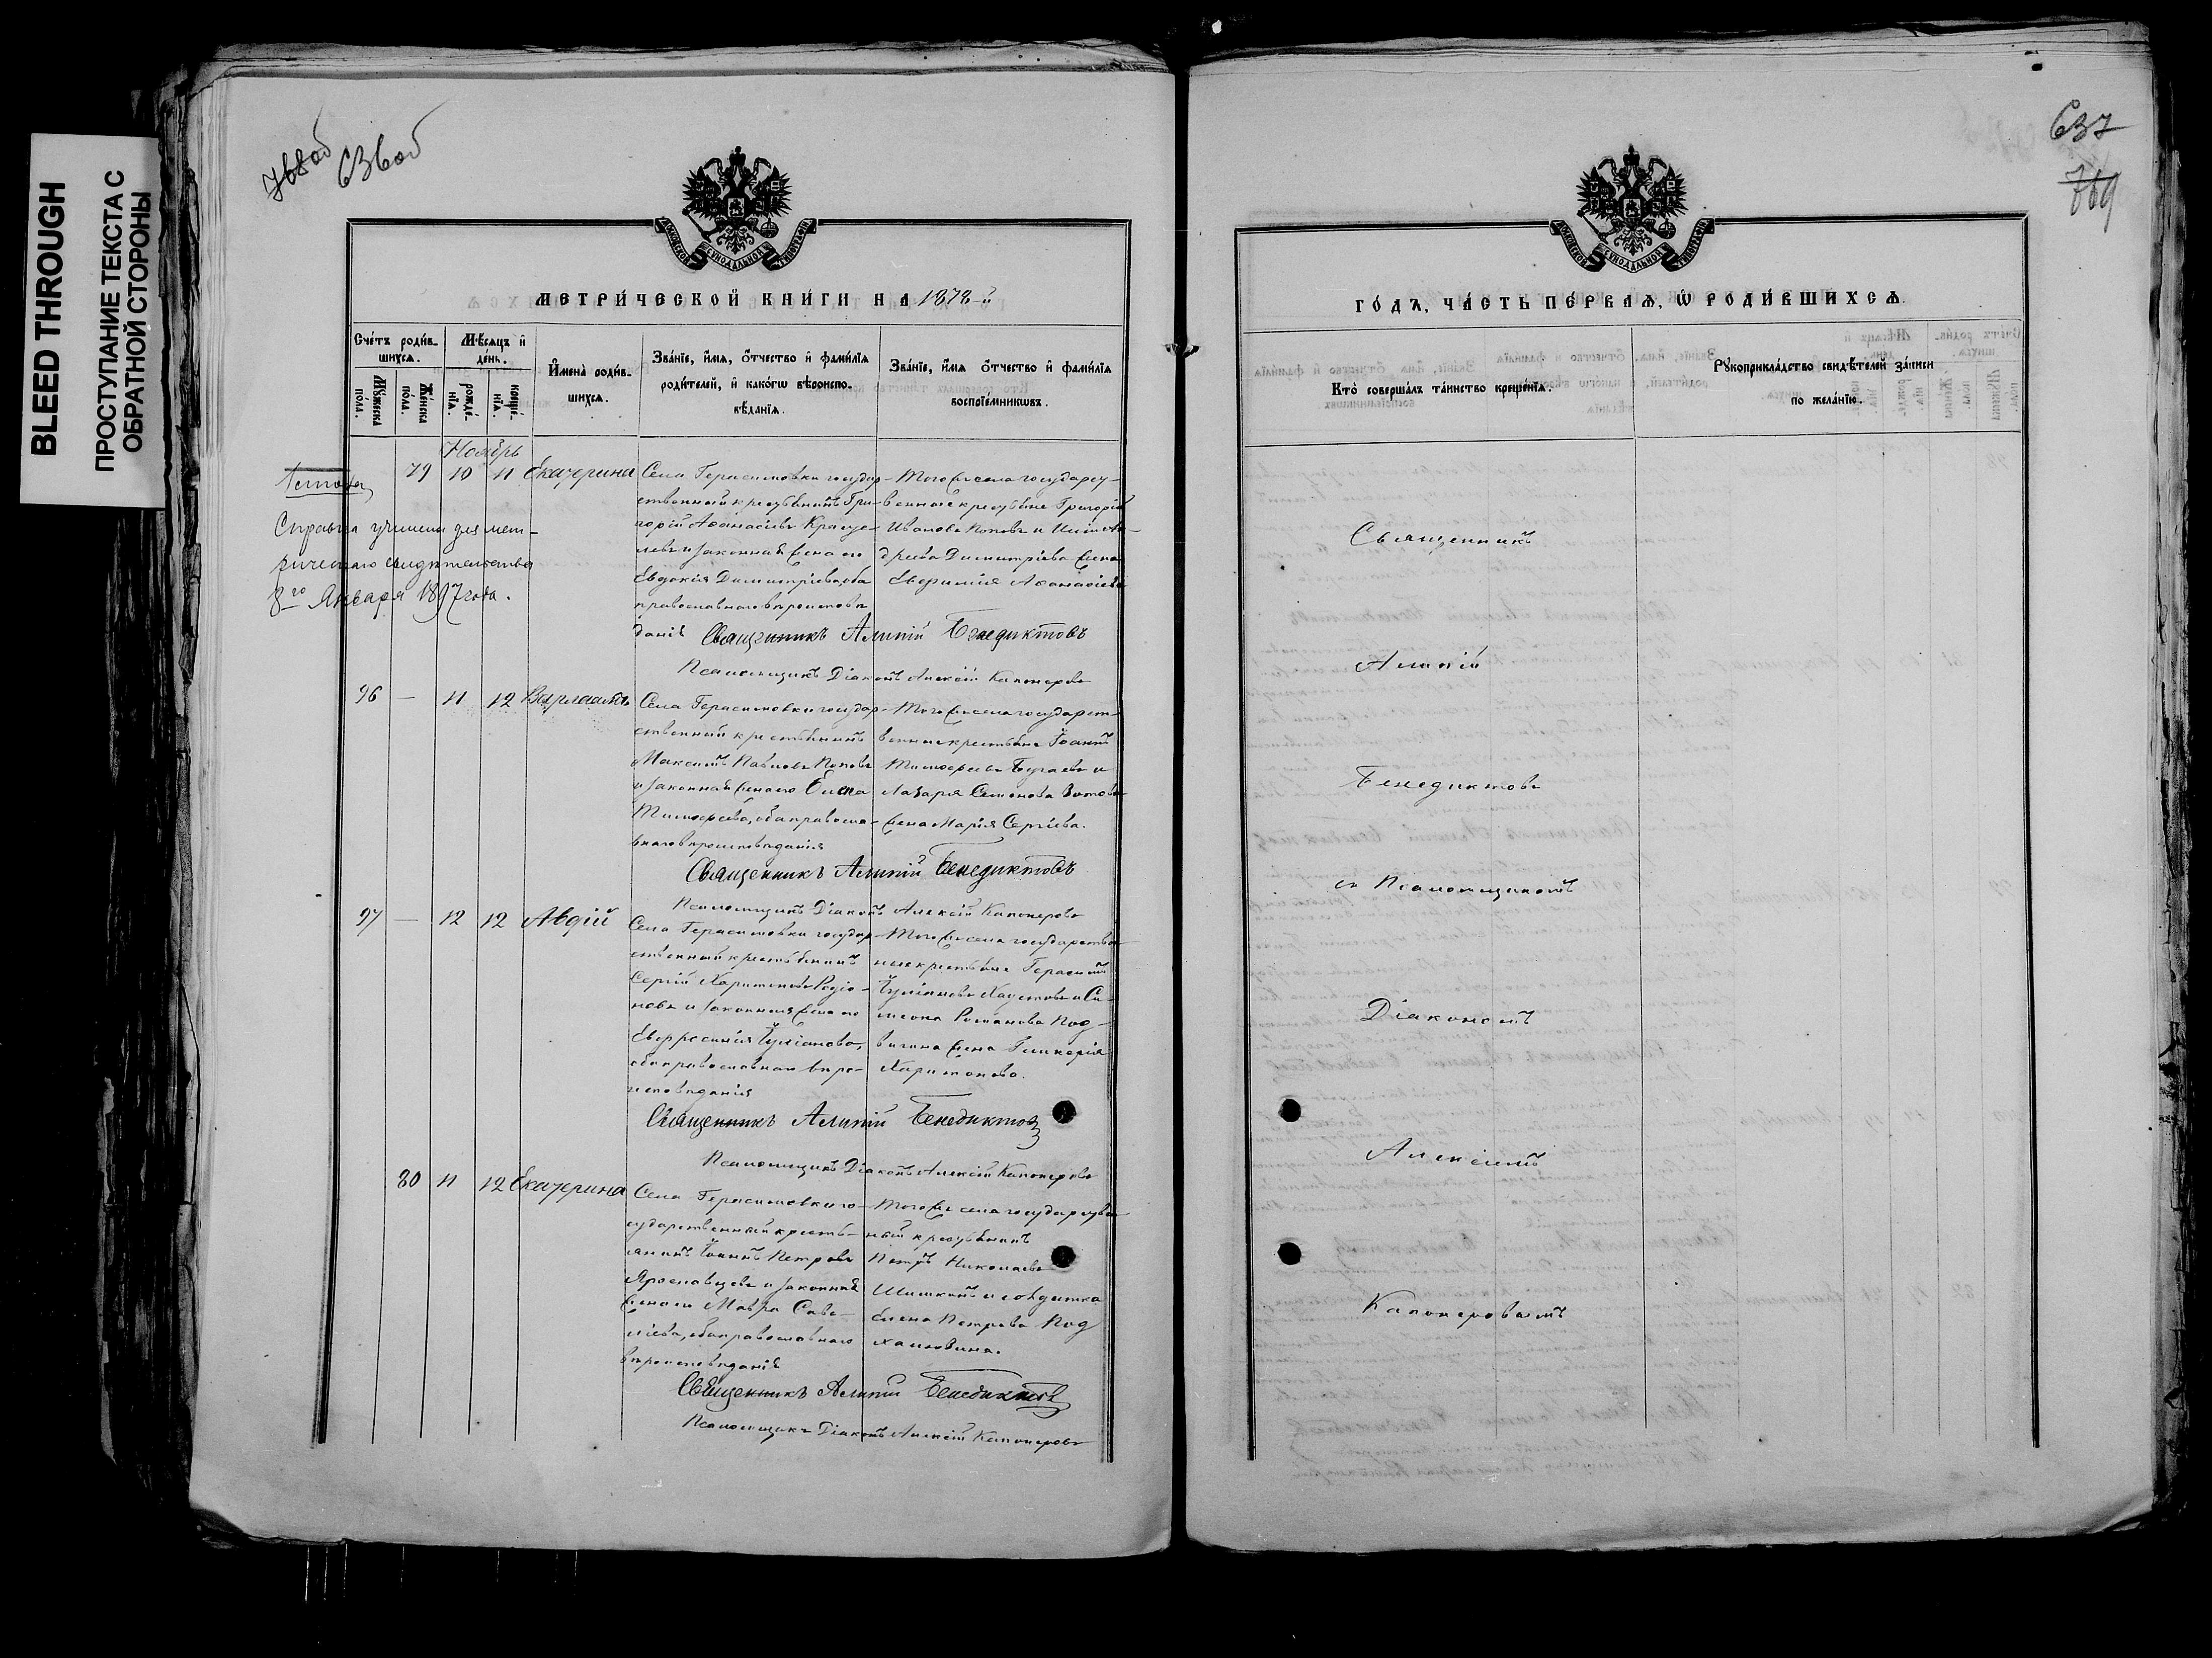 BLEED THROUGH
ПРОСТУПАНИЕ ТЕКСТА С
ОБРАТНОЙ СТОРОНЫ
768об
636об
МОСКОВСКОЙ СѴНОДАЛЬНОЙ ТИПОГРАФІИ
МЕТРИ́ЧЕСКОЙ КНИ́ГИ НА 1878-й
Сче́тъ роди́в-
шихсѧ.
Мѣ́сѧцъ и҆
де́нь.
Мꙋ́жеска
по́ла.
Же́нска
по́ла.
рожде́-
нїѧ.
креще́-
нїѧ.
И҆мена̀ роди́в-
шихсѧ.
Зва́нїе, и҆́мѧ, ѻ҆́тчество и҆ фами́лїѧ
роди́телей, и҆ како́гѡ вѣроиспо-
вѣ́данїѧ.
Зва́нїе, и҆́мѧ ѻ҆́тчество и҆ фами́лїѧ
воспрїе́мникѡвъ.
Ноябрь
79 10 11 Екатерина
Села Герасимовки государ-
ственный крестьянинъ Гри-
горій Аѳанасіевъ
и законная жена его
Евдокія Димитріева, оба
православнаго вѣроисповѣ-
данія
Тогоже села государст-
венные крестьяне Григорій
Ивановъ Поповъ и
Димитріева жена
Евфимія Аѳанасіева
Священникъ Алипій Бенедиктовъ
Псаломщикъ Діаконъ Алексій Капонеровъ
Справка учинена для мет-
рическаго свидѣтельства
8го Января 1897 года.
96 — 11 12 Варлаамъ
Села Герасимовки государ-
ственный крестьянинъ
Максимъ Павловъ Поповъ
и законная жена его
Тимоѳеева, оба правосла-
внаго вѣроисповѣданія
Тогоже села государст-
венные крестьяне Іоаннъ
Тимоѳеевъ Бугаевъ и
Лазаря Семенова Зотова
жена Марія Сергіева.
Священникъ Алипій Бенедиктовъ
Псаломщикъ Діаконъ Алексій Капонеровъ
97 — 12 12 Авдій
Села Герасимовки государ-
ственный крестьянинъ
Сергій Харитоновъ Родіо-
новъ и законная жена его
Евфросинія Іуліанова,
оба православнаго вѣро-
исповѣданія
Тогоже села государствен-
ные крестьяне Герасимъ
Іуліановъ Хаустовъ и Си-
меона Романова Под-
вигина жена Гликерія
Харитонова.
Священникъ Алипій Бенедиктовъ
Псаломщикъ Діаконъ Алексій Капонеровъ
80 11 12 Екатерина
Села Герасимовки го-
сударственный кресть-
янинъ Іоаннъ Петровъ
Ярославцевъ и законная
жена его Мавра Саве-
ліева, оба православнаго
вѣроисповѣданія
Тогоже села государствен-
ный крестьянинъ
Петръ Николаевъ
Шишкинъ и солдатка
Елена Петрова Под
халюзина.
Священникъ Алипій Бенедиктовъ
Псаломщикъ Діаконъ Алексій Капонеровъ
637
769
МОСКОВСКОЙ СѴНОДАЛЬНОЙ ТИПОГРАФІИ
ГО́ДЪ, ЧА́СТЬ ПЕ́РВАѦ, Ѡ҆ РОДИ́ВШИХСѦ.
Кто̀ соверша́лъ та́инство креще́нїѧ.
Рꙋкоприкла́дство свидѣ́телей за́писи
по жела́нїю.
Священникъ
Алипій
Бенедиктовъ
съ Псаломщикомъ
Діакономъ
Алексіемъ
Капонеровымъ